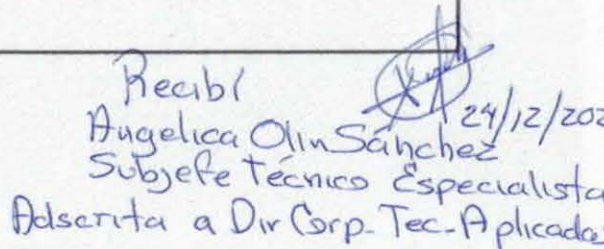 Recibí
24/12/202
Angelica Olin Sánchez
Subjefe Técnico Especialista
Adscrita a Dir Corp. Tec. Aplicada